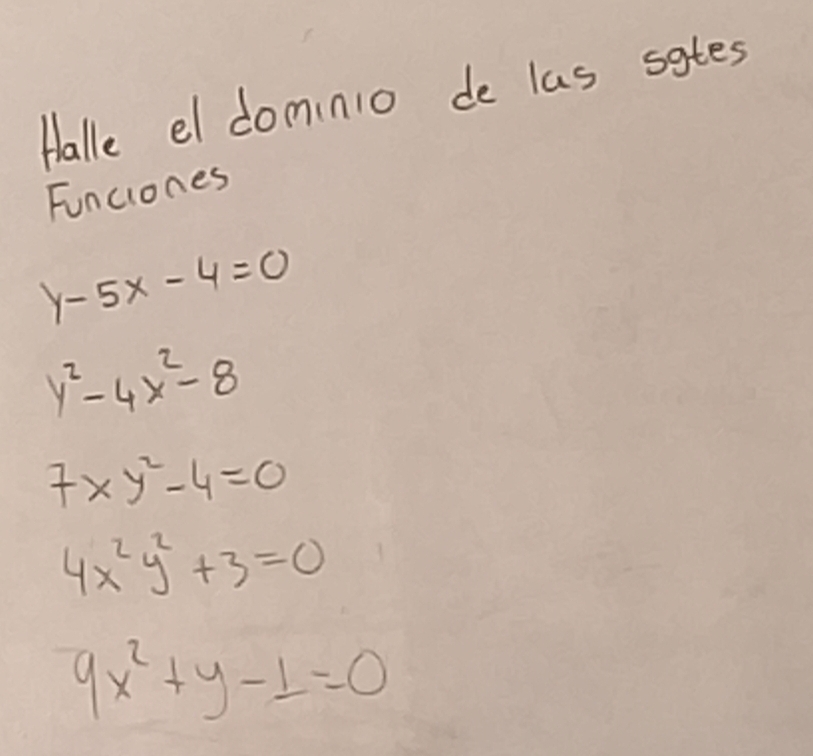 Halle el dominio de las sgtes
Funciones
y-5x-4=0
y²-4x²-8
7xy²-4=0
4x²y²+3=0
9x²+y-1=0